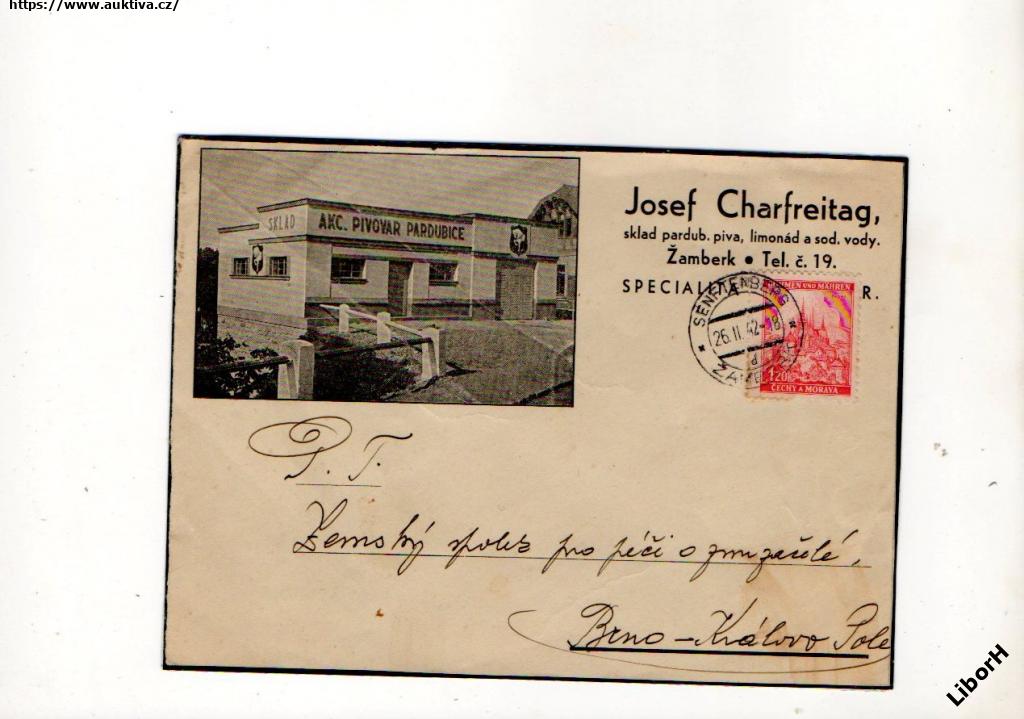 https://www.auktiva.cz/
SKLAD
AKC. PIVOVAR PARDUBICE
Josef Charfreitag,
sklad pardub. piva, limonád a sod. vody.
Žamberk • Tel. č. 19.
SPECIALITA R.
SENFTENBERG
26.II.42-18
d
ŽAMBERK
BÖHMEN UND MÄHREN
1.20
ČECHY A MORAVA
P. T.
Zemský spolek pro péči o zmrzačelé,
Brno – Královo Pole
LiborH